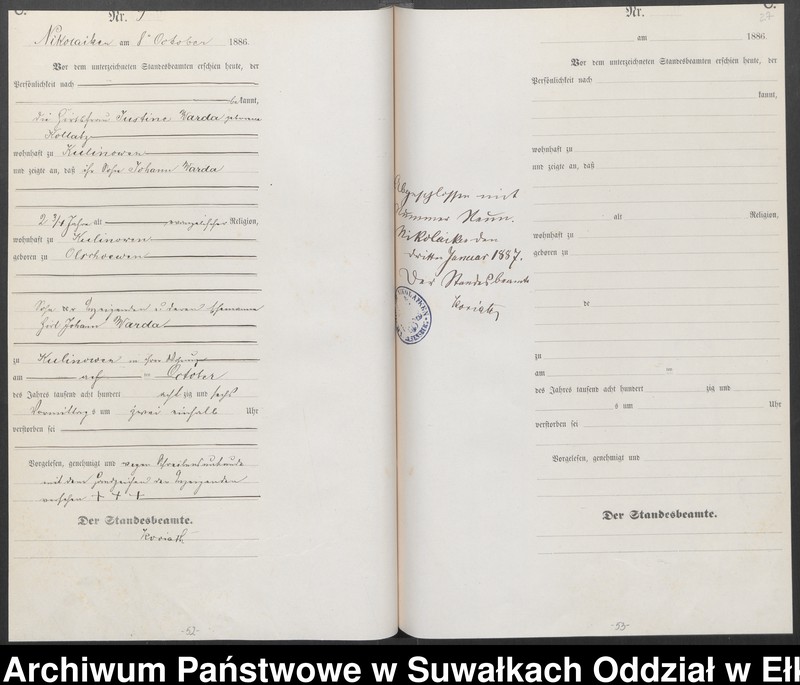 Nr. 9
Nikolaiken am 8ten October 1886.
Vor dem unterzeichneten Standesbeamten erschien heute, der
Persönlichkeit nach
bekannt,
die Hirtsfrau Justine Warda geborene
Kollatz
wohnhaft zu Kulinowen
und zeigte an, daß ihr Sohn Johann Warda
2 3/4 Jahre alt evangelischer Religion,
wohnhaft zu Kulinowen
geboren zu Olschoewen
Sohn der Anzeigenden u deren Ehemanne
Hirt Johann Warda
zu Kulinowen in ihrer Wohnung
am acht ten October
des Jahres tausend acht hundert acht zig und sechs
Vormittags um zwei einhalb Uhr
verstorben sei
Vorgelesen, genehmigt und wegen Schreibensunkunde
mit dem Handzeichen der Anzeigenden
versehen + + +
Der Standesbeamte.
Koriath
-52-
Abgeschlossen mit
Nummer Neun.
Nikolaiken den
dritten Januar 1887.
Der Standesbeamte
Koriath
Nr.
C.
27
am 1886.
Vor dem unterzeichneten Standesbeamten erschien heute, der
Persönlichkeit nach
kannt,
wohnhaft zu
und zeigte an, daß
alt Religion,
wohnhaft zu
geboren zu
de
zu
am ten
des Jahres tausend acht hundert zig und
s um Uhr
verstorben sei
Vorgelesen, genehmigt und
Der Standesbeamte.
-53-
Archiwum Państwowe w Suwałkach Oddział w Ełk